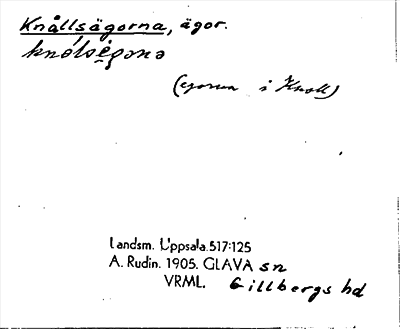 Knållsägorna, ägor.
knólsègọnə
(egorna i Knoll)
Landsm. Uppsala 517:125
A. Rudin. 1905. GLAVA sn
VRML. Gillbergs hd